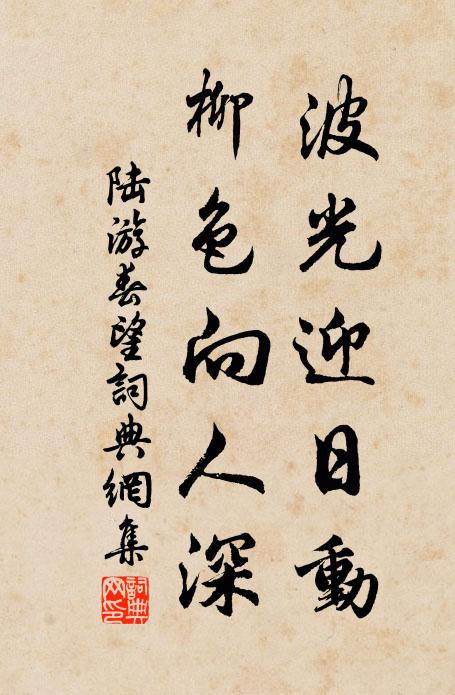 波光迎日動
柳色向人深
陸游春望詞典網集
詞典網印